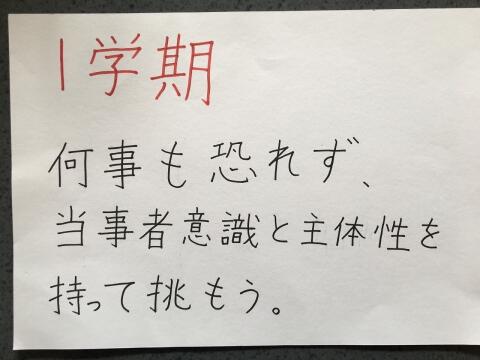 1学期
何事も恐れず、
当事者意識と主体性を
持って挑もう。